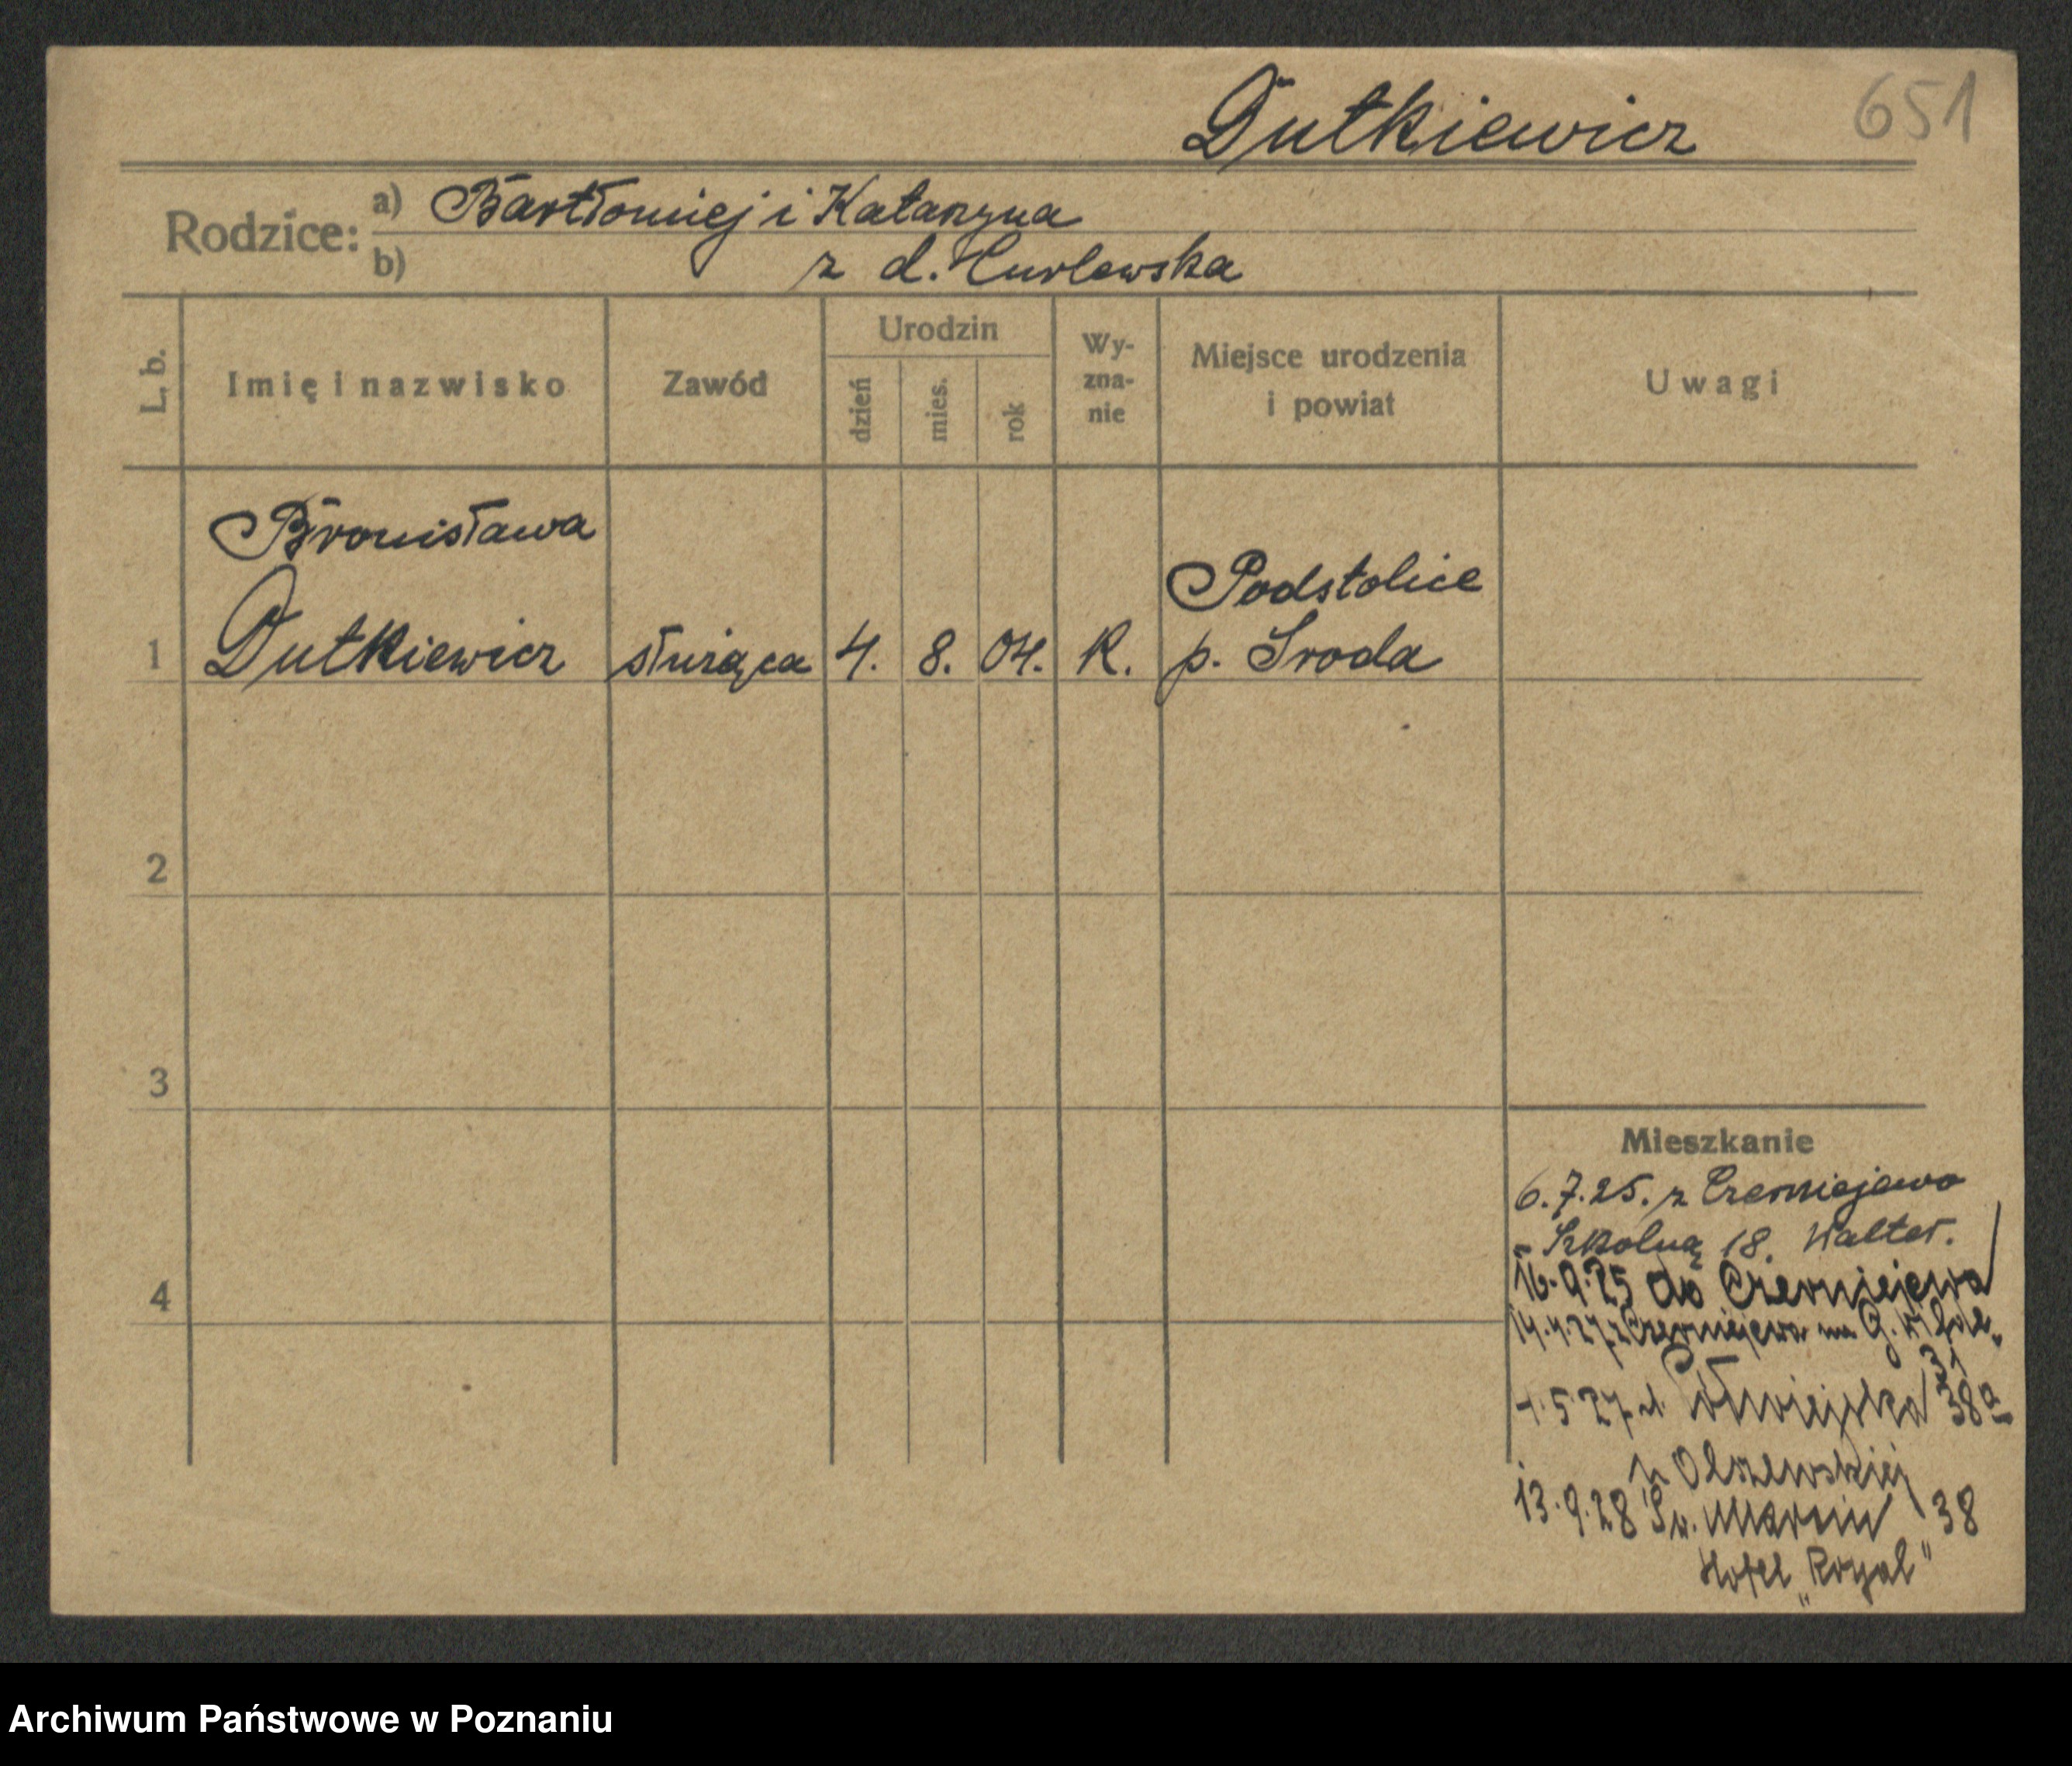 Dutkiewicz 651
Rodzice: a) Bartłomiej i Katarzyna
b) z d. Curlewska
L. b.
Imię i nazwisko
Zawód
Urodzin
dzień
mies.
rok
Wy-
zna-
nie
Miejsce urodzenia
i powiat
Uwagi
Bronisława
Podstolice
1 Dutkiewicz służąca 4. 8. 04. K. p. Środa
2
3
4
Mieszkanie
6.7.25. z Czerniejewo
Szkolną 18. Walter.
16.9.25 do Czerniejewa
14.4.27 z Czerniejewa na G. Wilde
31
4.5.27 Półwiejska 38a
u Olszewskiej
13.9.28 Św. Marcin 38
Hotel „Royal"
Archiwum Państwowe w Poznaniu